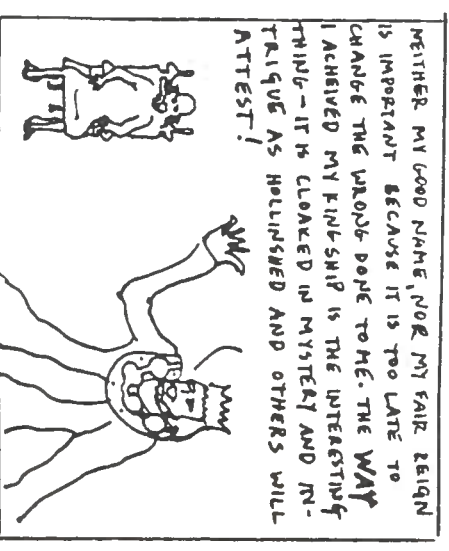 NEITHER MY GOOD NAME, NOR MY FAIR REIGN
IS IMPORTANT BECAUSE IT IS TOO LATE TO
CHANGE THE WRONG DONE TO ME. THE WAY
I ACHEIVED MY KINGSHIP IS THE INTERESTING
THING - IT IS CLOAKED IN MYSTERY AND IN-
TRIGUE AS HOLLINSHED AND OTHERS WILL
ATTEST!